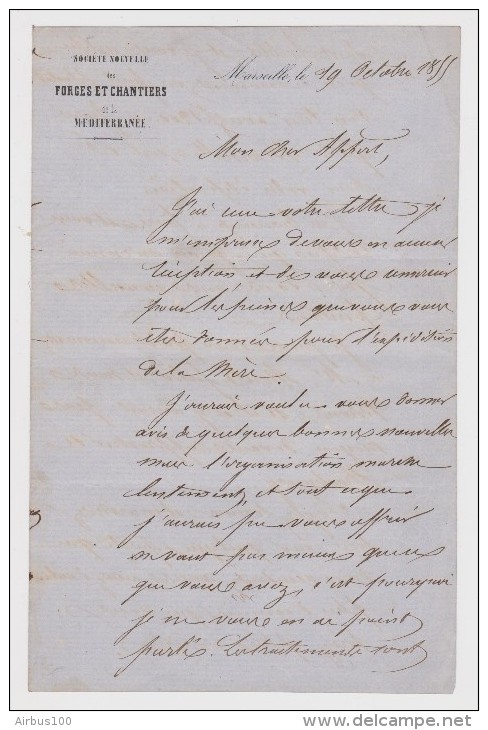 SOCIÉTÉ NOUVELLE
des
FORGES ET CHANTIERS
de la
MÉDITERRANÉE
Marseille, le 19 Octobre 1855
Mon cher Appert,
J'ai eu votre lettre je
m'empresse de vous en accuser
réception et de vous remercier
pour les peines que vous vous
êtes données pour l'expédition
de la Mère.
J'aurais voulu vous donner
avis de quelques bonnes nouvelles
mais l'organisation marche
lentement, et tout ce que
j'aurais pu vous offrir
ne vaut pas mieux que ce
que vous avez, c'est pourquoi
je ne vous en ai point
parlé. Les traitements sont
Airbus100
www.delcampe.net